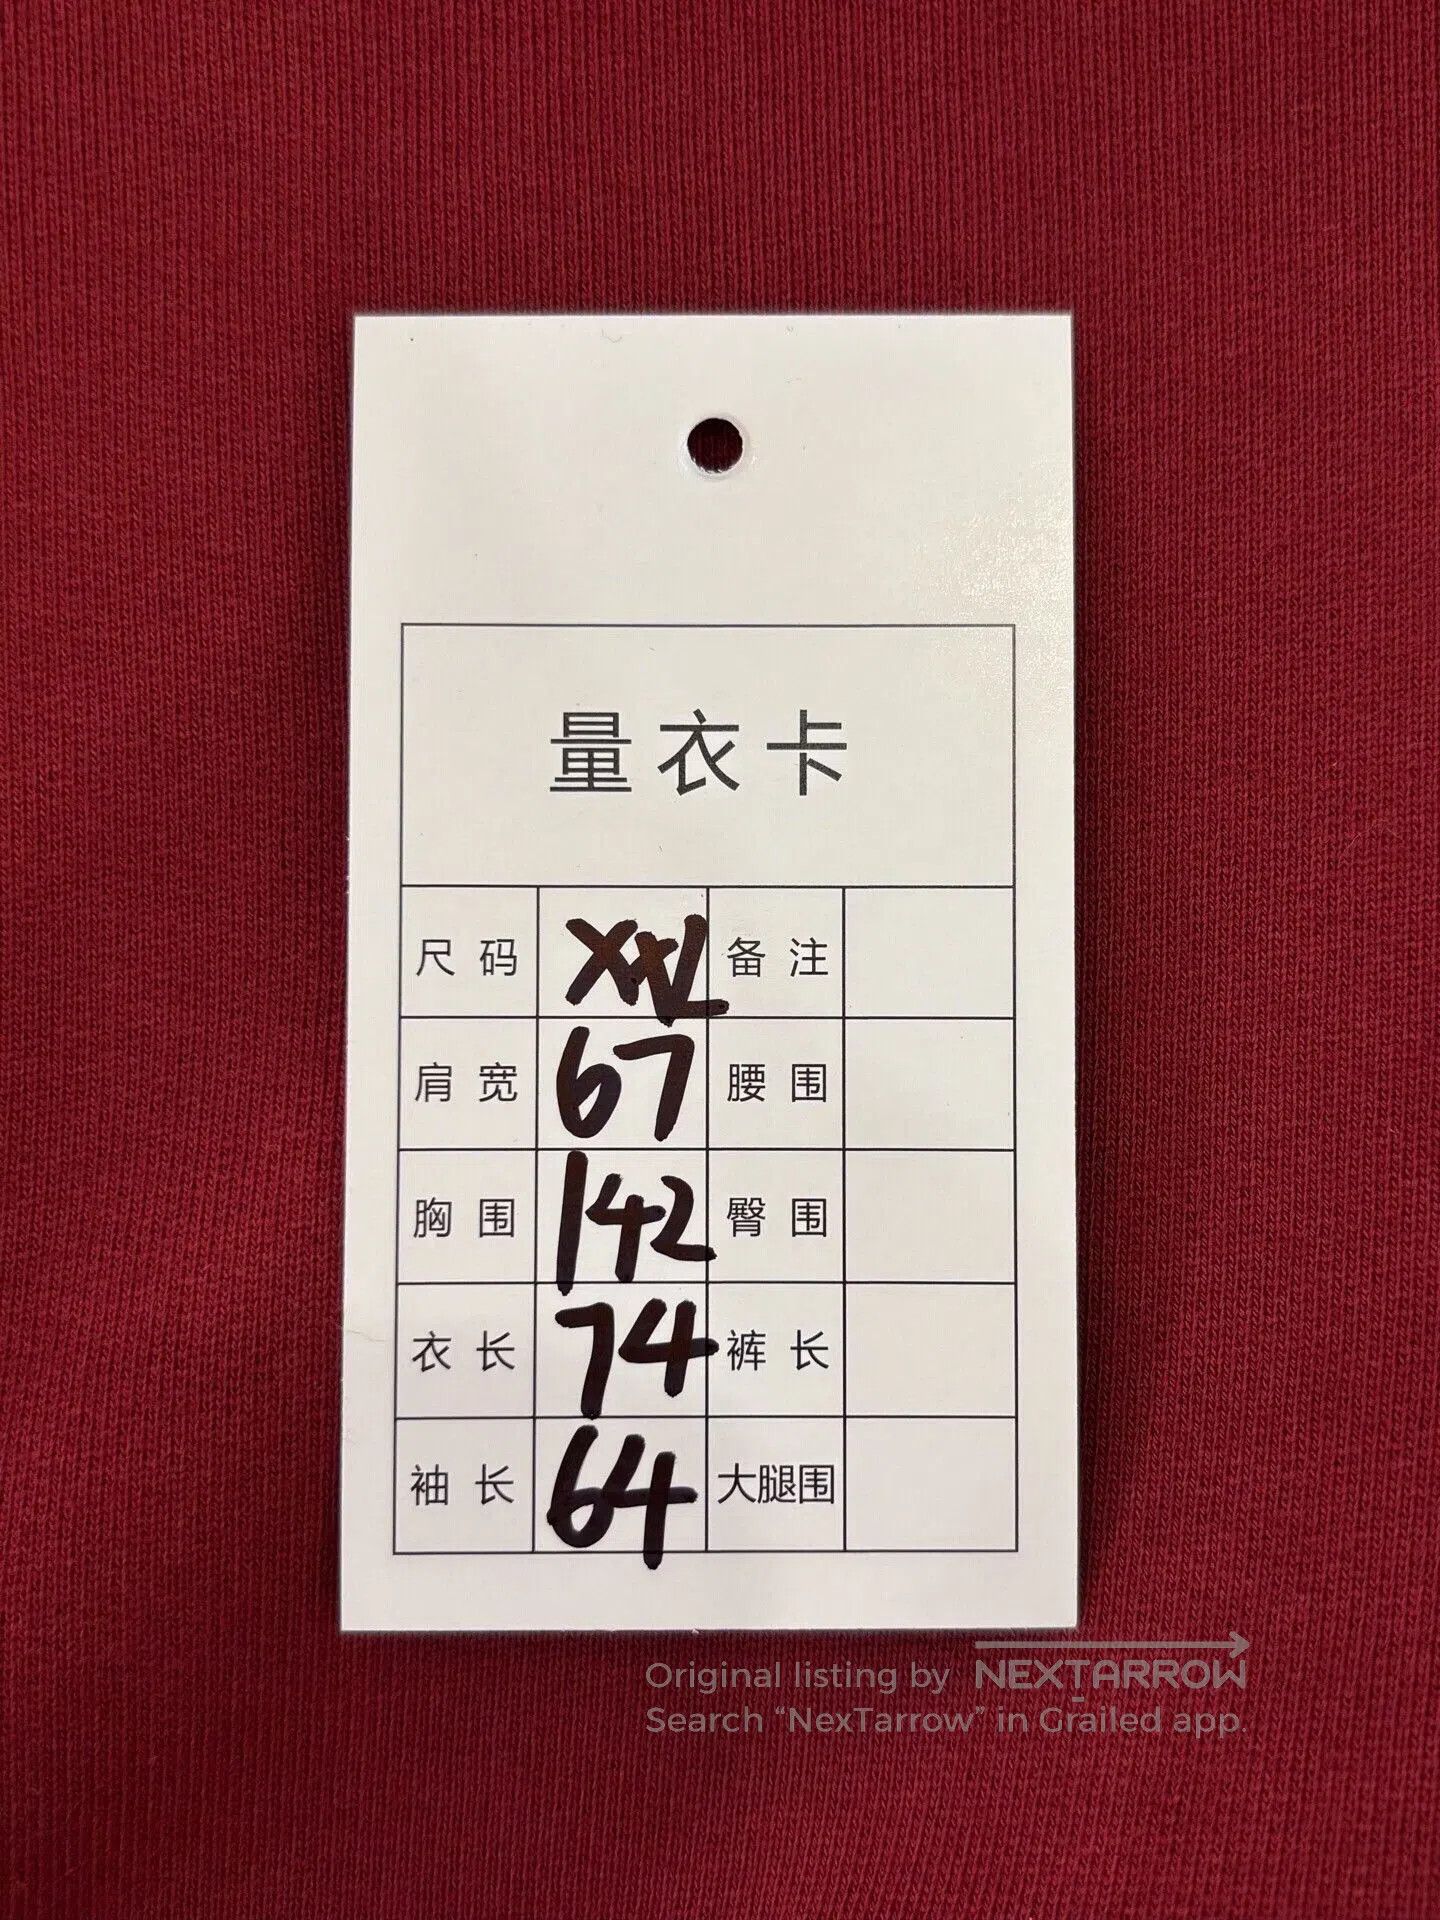 量衣卡
尺码 XXL 备注
肩宽 67 腰围
胸围 142 臀围
衣长 74 裤长
袖长 64 大腿围
Original listing by NEXTARROW
Search “NexTarrow” in Grailed app.